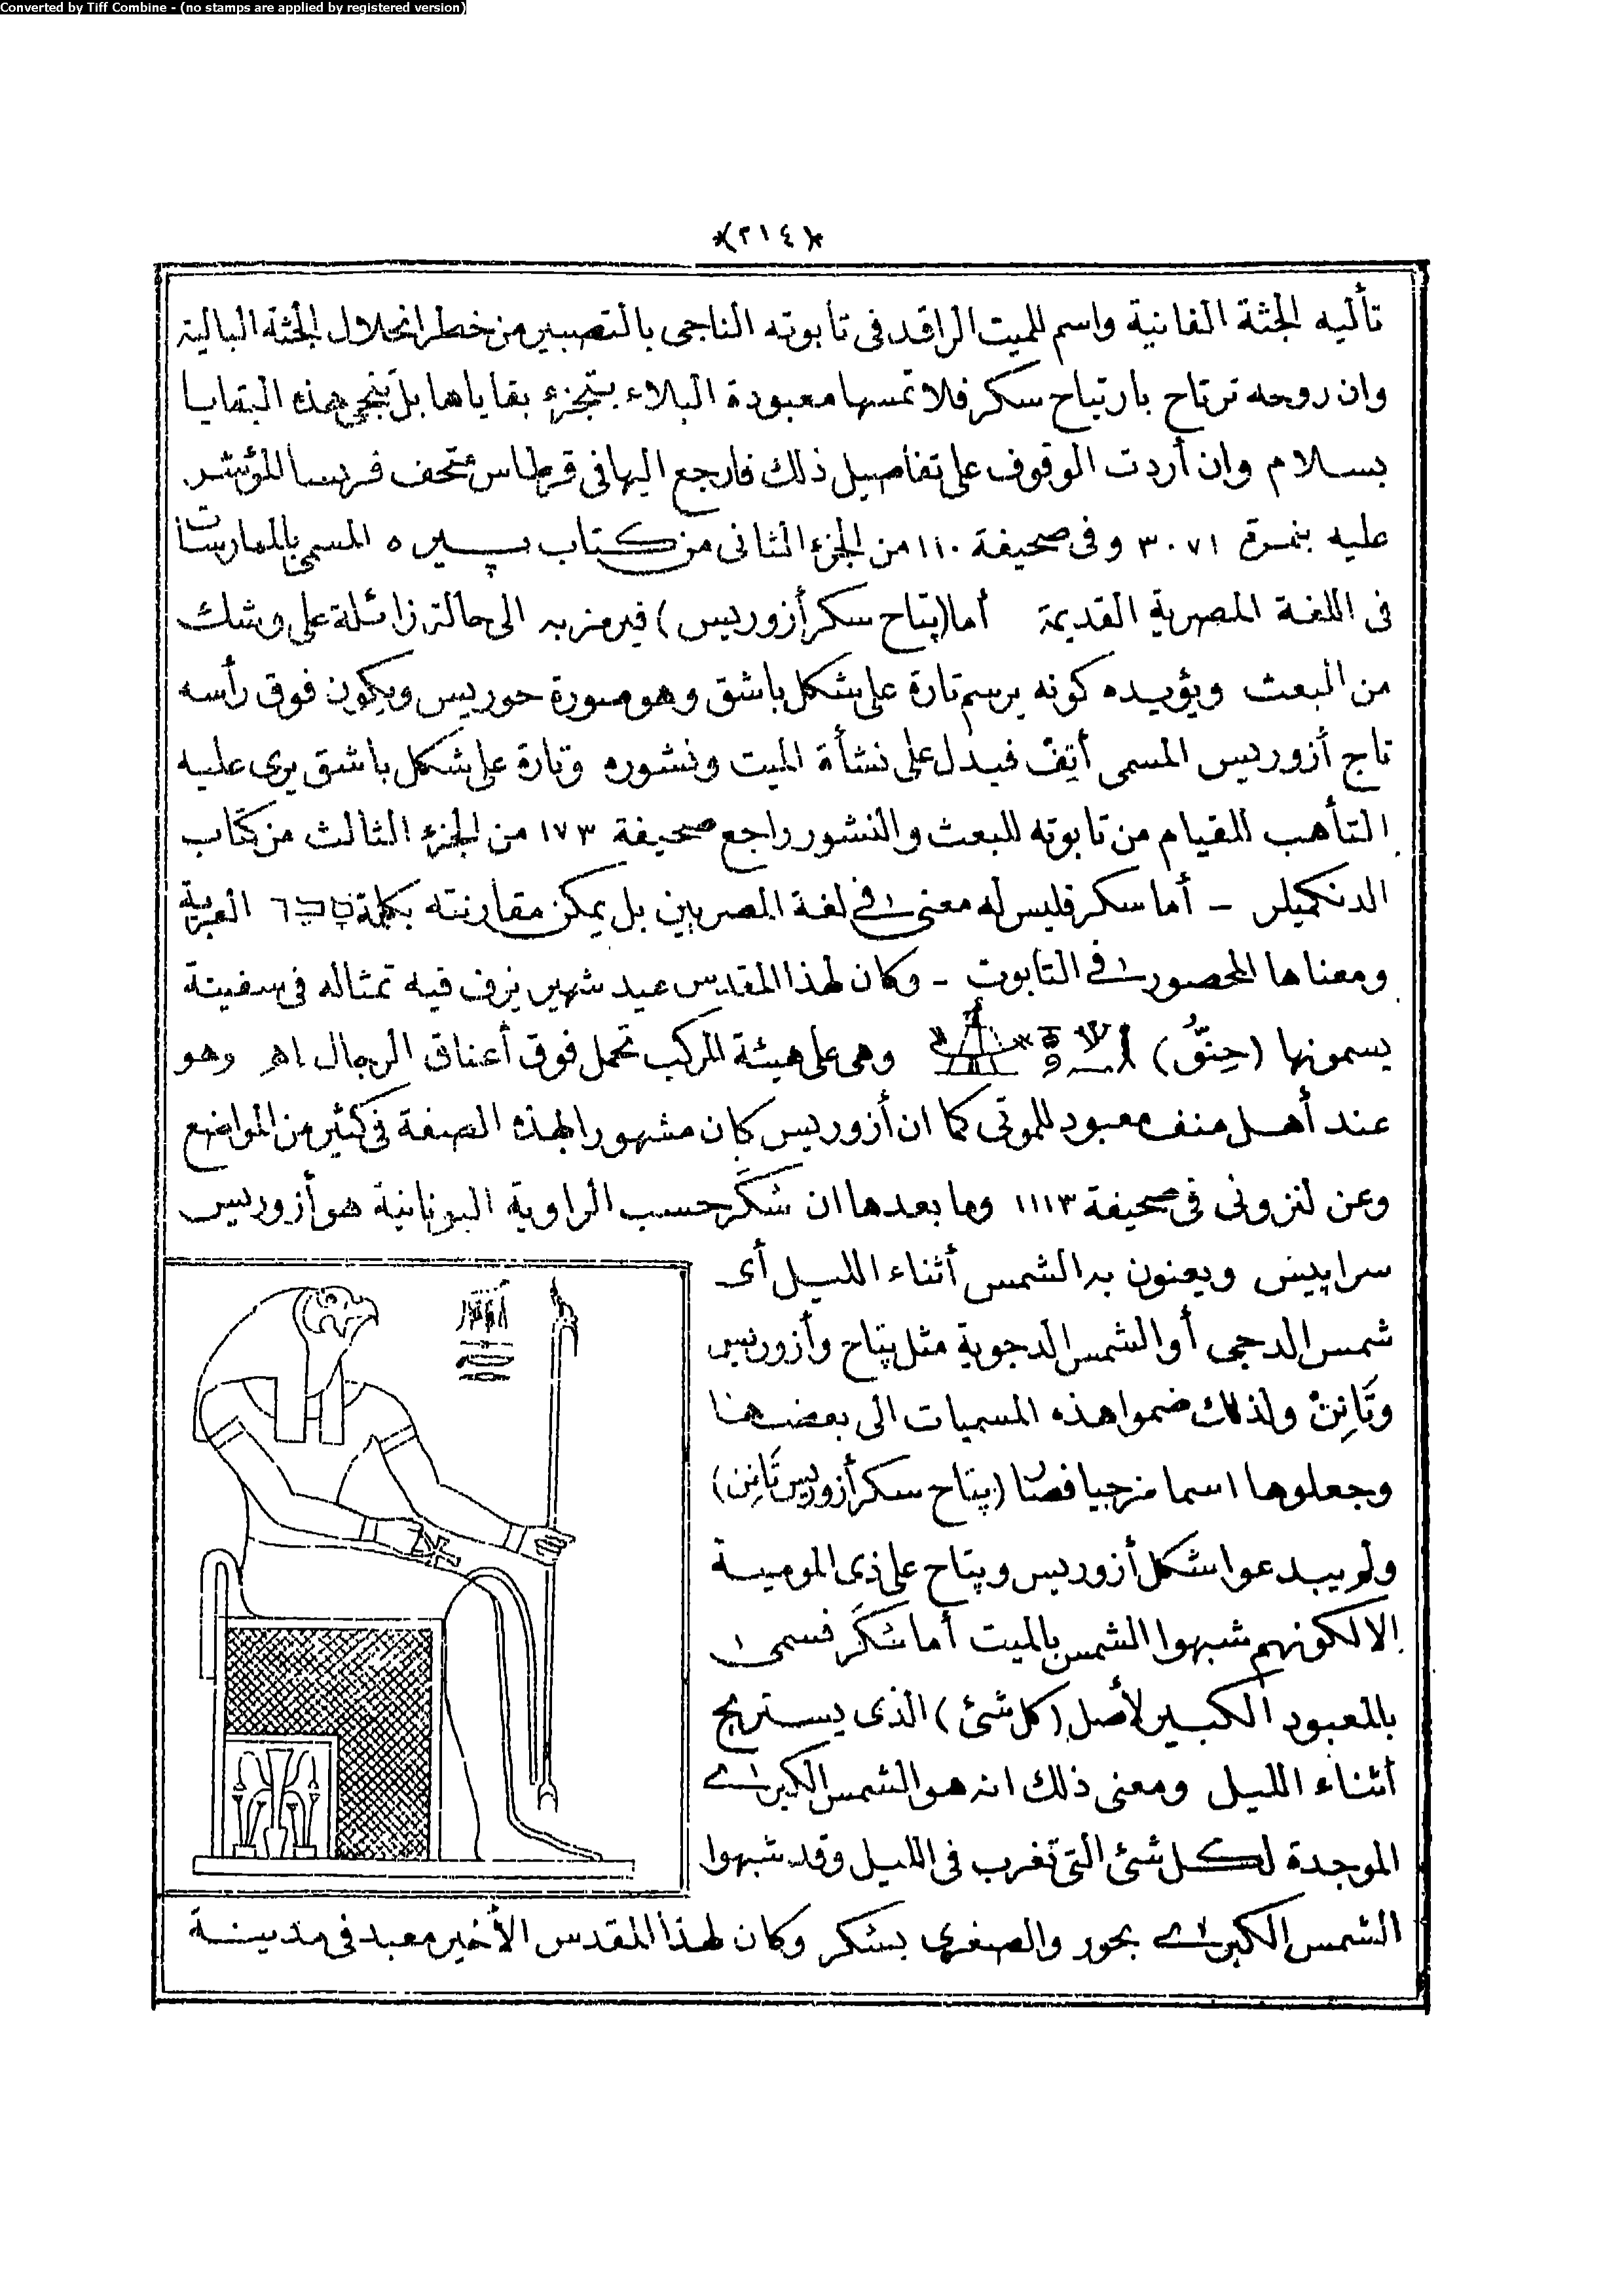 Converted by Tiff Combine - (no stamps are applied by registered version)
*(٢١٤)*
تأليه الجثة الفانية واسم للميت الراقد فى تابوته الناجى بالتصبير من خطر انحلال الجثة البالية
وان روحه ترتاح بارتياح سكر فلا تمسها معبودة البلاء بتجزء بقاياها بل تنجى هذه البقايا
بسلام وان أردت الوقوف على تفاصيل ذلك فارجع اليها فى قرطاس متحف فرنسا المؤشر
عليه بنمرة ٣٠٧١ وفى صحيفة ١١٠ من الجزء الثانى من كتاب پييره المسمى بالممارسات
فى اللغة المصرية القديمة أما (پتاح سكر أزوريس) فيرمز به الى حالة زائلة على وشك
من البعث ويؤيده كونه يرسم تارة على شكل باشق وهو صورة حوريس ويكون فوق رأسه
تاج أزوريس المسمى أتِفْ فيدل على نشأة الميت ونشوره وتارة على شكل باشق يرى عليه
التأهب للقيام من تابوته للبعث والنشور راجع صحيفة ١٧٣ من الجزء الثالث من كتاب
الدنكميلر - أما سكر فليس له معنى فى لغة المصريين بل يمكن مقارنته بكلمة العبرية
ومعناها المحصور فى التابوت - وكان لهذا المقدس عيد شهير يزف فيه تمثاله فى سفينة
يسمونها (حِنّوُ) وهى على هيئة المركب تحمل فوق أعناق الرجال اهـ وهو
عند أهل منف معبود للموتى كما ان أزوريس كان مشهورا بهذه الصفة فى كثير من المواضع
وعن لنزونى فى صحيفة ١١١٣ وما بعدها ان سَكَر حسب الراوية اليونانية هو أزوريس
سراپيس ويعنون به الشمس أثناء الليل أى
شمس الدجى أو الشمس الدجوية مثل پتاح وأزوريس
وتَانِنْ ولذلك ضموا هذه المسميات الى بعضها
وجعلوها اسما مزجيا فصار (پتاح سكر أزوريس تَانِن)
ولم يبدعوا شكل أزوريس وپتاح على زى المومية
إلا لكونهم شبهوا الشمس بالميت أما سَكَر فسمى
بالمعبود الكبير لأصل (كل شئ) الذى يستريح
أثناء الليل ومعنى ذلك انه هو الشمس الكبرى
الموجدة لكل شئ التى تغرب فى الليل وقد شبهوا
الشمس الكبرى بحور والصغرى بسكر وكان لهذا المقدس الأخير معبد فى مدينة